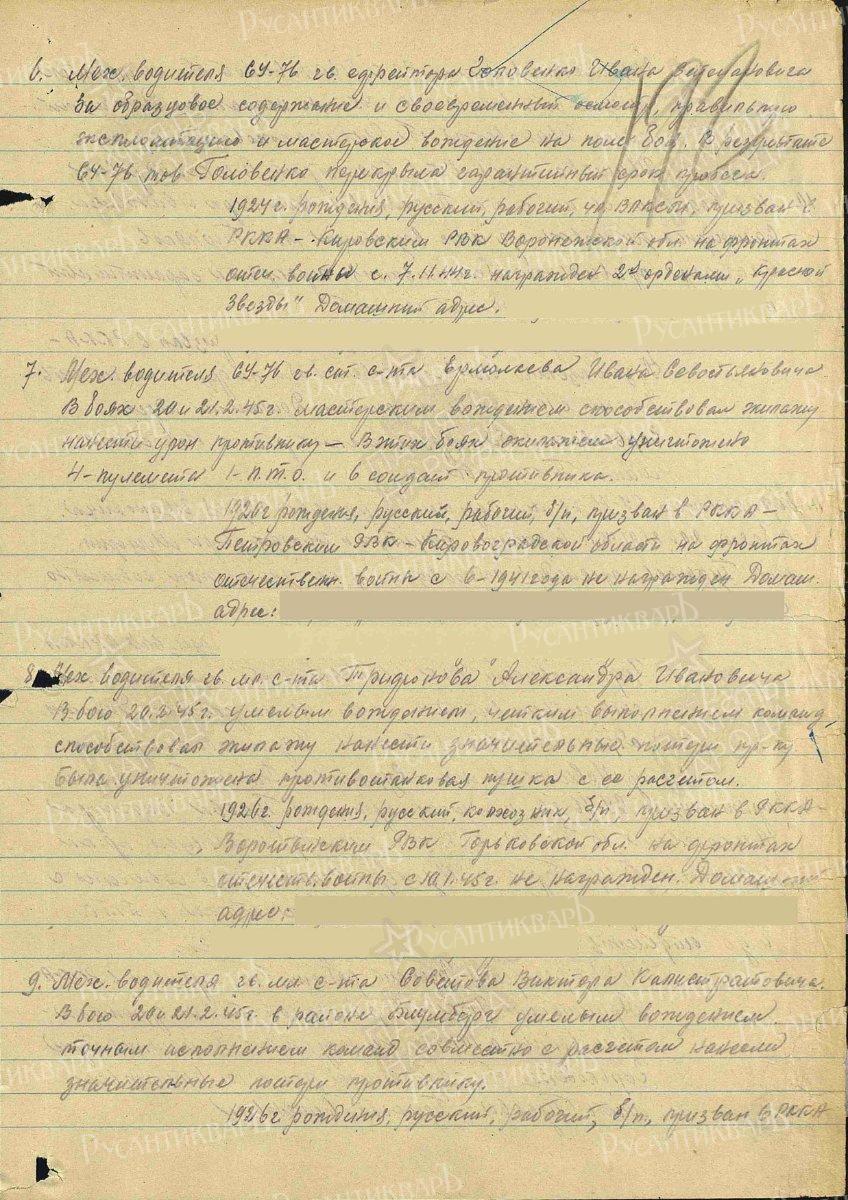 6. Мех. водителя СУ-76 гв. ефрейтора Головенко Ивана
за образцовое содержание и своевременный осмотр, правильную
эксплоатацию и мастерское вождение на поле боя. В результате
СУ-76 тов Головенко перекрыла гарантийный срок пробега.
1924 г. рождения, русский, рабочий, чл ВЛКСМ, призван в
РККА – Кировским РВК Воронежской обл. на фронтах
отеч. войны с. 7.11.44г. награжден 2я орденами „Красной
Звезды" Домашний адрес.
7. Мех. водителя СУ-76 гв. ст. с-та Ермолаева Ивана Севостьяновича
В боях 20 и 21.2.45г. мастерским вождением способствовал экипажу
нанести урон противнику – В этих боях экипажем уничтожено
4-пулемета 1-п.т.о. и 6 солдат противника.
1926г рождения, русский, рабочий, б/п, призван в РККА –
Петровским РВК – Кировоградской области на фронтах
отечествен. войны с 6-1941 года не награжден Домаш.
адрес:
8. Мех водителя гв. мл. с-та Александра Ивановича
В бою 20.2.45г. умелым вождением, четким выполнением команд
способствовал экипажу нанести значительные потери пр-ку
была уничтожена противотанковая пушка с ее расчетом.
1926г. рождения, русский, колхозник, б/п, призван в РККА –
РВК Горьковской обл. на фронтах
отечеств. войны с 10.1.45г. не награжден. Домашний
адрес:
9. Мех. водителя гв. мл. с-та Советова Виктора Калистратовича.
В бою 20 и 21.2.45г. в районе Блумберг умелым вождением
точным исполнением команд совместно с расчетом нанесли
значительные потери противнику.
1926г рождения, русский, рабочий, б/п, призван в РККА